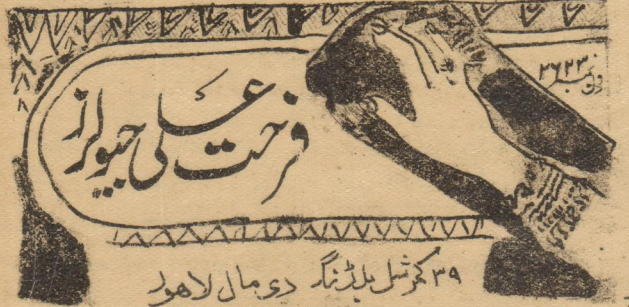 فون نمبر ۳۶۲۳
فرحت علی جیولرز
۳۹ کمرشل بلڈنگ دی مال لاهور